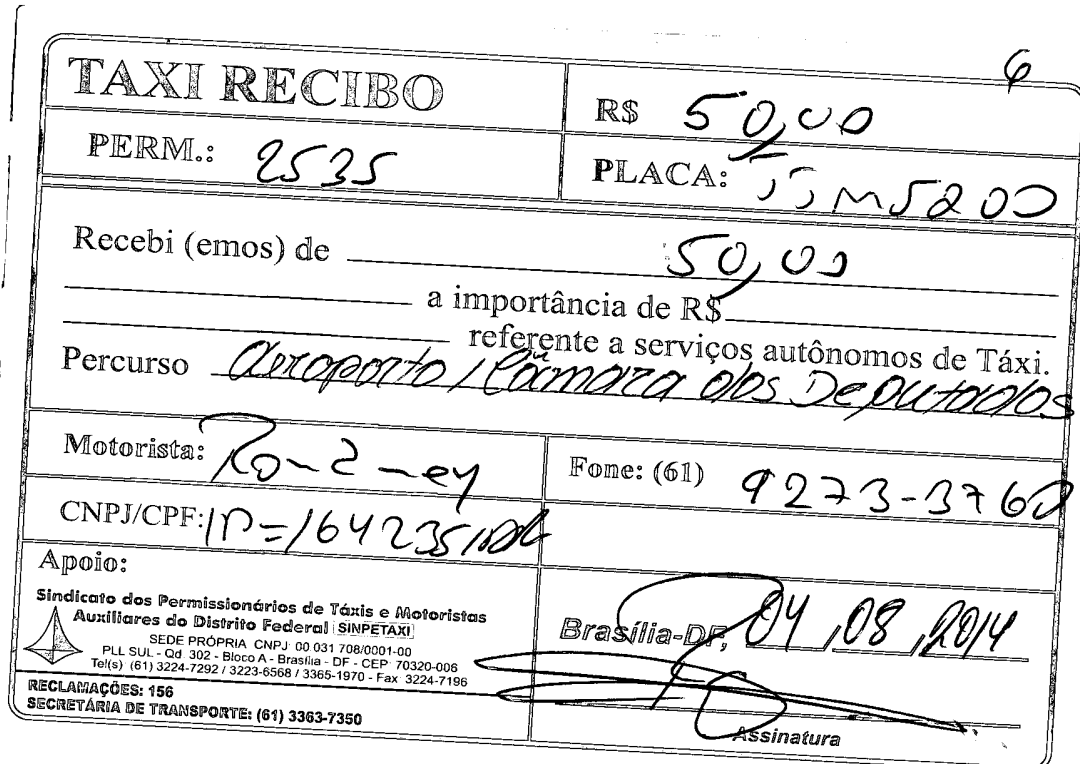 6
TAXI RECIBO
R$ 50,00
PERM.: 2535
PLACA: JJM5200
Recebi (emos) de 50,00
a importância de R$
referente a serviços autônomos de Táxi.
Percurso Aeroporto / Câmara dos Deputados
Motorista:
Fone: (61) 9273-3760
CNPJ/CPF:
Apoio:
Sindicato dos Permissionários de Táxis e Motoristas
Auxiliares do Distrito Federal SINPETAXI
SEDE PRÓPRIA CNPJ: 00 031 708/0001-00
PLL SUL - Qd. 302 - Bloco A - Brasília - DF - CEP: 70320-006
Tel(s) (61) 3224-7292 / 3223-6568 / 3365-1970 - Fax: 3224-7196
RECLAMAÇÕES: 156
SECRETÁRIA DE TRANSPORTE: (61) 3363-7350
Brasília-DF, 04 / 08 / 2014
Assinatura